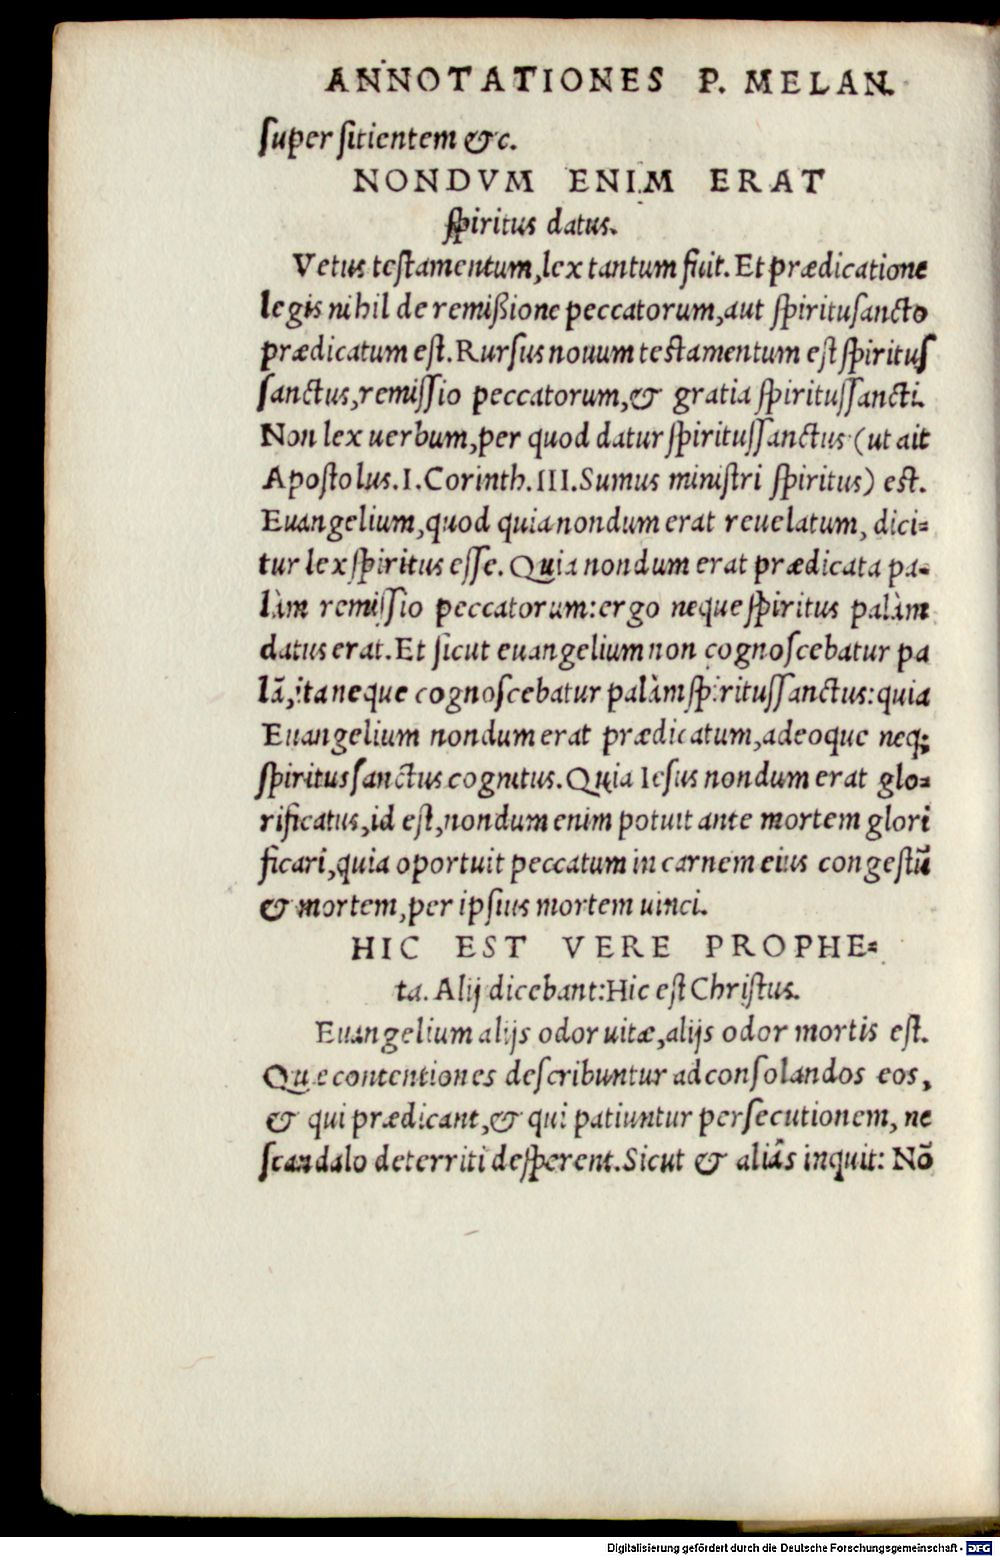 ANNOTATIONES P. MELAN.
ſuper ſitientem &c.
NONDVM ENIM ERAT
ſpiritus datus.
Vetus teſtamentum, lex tantum fuit. Et prædicatione
legis nihil de remißione peccatorum, aut ſpirituſancto
prædicatum eſt. Rurſus nouum teſtamentum eſt ſpirituſ
ſanctus, remiſſio peccatorum, & gratia ſpirituſſancti.
Non lex uerbum, per quod datur ſpirituſſanctus (ut ait
Apoſtolus. I. Corinth. III. Sumus miniſtri ſpiritus) eſt.
Euangelium, quod quia nondum erat reuelatum, dici⸗
tur lex ſpiritus eſſe. Quia nondum erat prædicata pa⸗
làm remiſſio peccatorum: ergo neque ſpiritus palàm
datus erat. Et ſicut euangelium non cognoſcebatur pa
lā, ita neque cognoſcebatur palàm ſpirituſſanctus: quia
Euangelium nondum erat prædicatum, adeoque neq;
ſpiritus ſanctus cognitus. Quia Ieſus nondum erat glo⸗
rificatus, id eſt, nondum enim potuit ante mortem glori
ficari, quia oportuit peccatum in carnem eius congeſtū
& mortem, per ipſius mortem uinci.
HIC EST VERE PROPHE⸗
ta. Alij dicebant: Hic eſt Chriſtus.
Euangelium alijs odor uitæ, alijs odor mortis eſt.
Quæ contentiones deſcribuntur ad conſolandos eos,
& qui prædicant, & qui patiuntur perſecutionem, ne
ſcandalo deterriti deſperent. Sicut & aliâs inquit: Nō
Digitalisierung gefördert durch die Deutsche Forschungsgemeinschaft - DFG